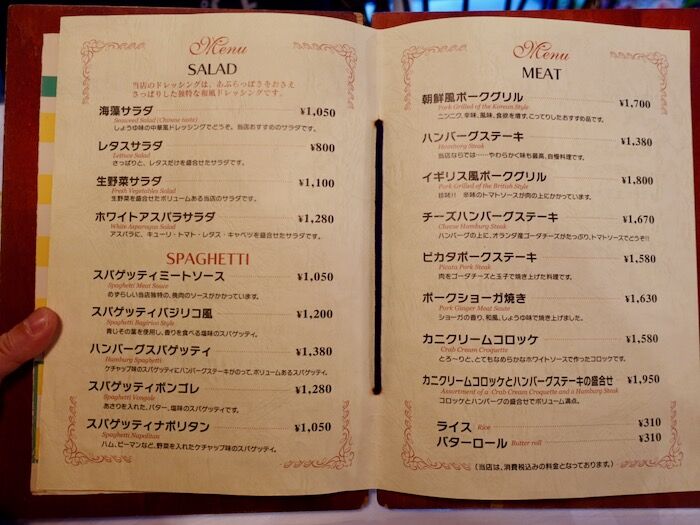 Menu
SALAD
当店のドレッシングは、あぶらっぽさをおさえ
さっぱりした独特な和風ドレッシングです。
海藻サラダ ¥1,050
Seaweed Salad (Chinese taste)
しょうゆ味の中華風ドレッシングでどうぞ。当店おすすめのサラダです。
レタスサラダ ¥800
Lettuce Salad
さっぱりと、レタスだけを盛合せたサラダです。
生野菜サラダ ¥1,100
Fresh Vegetables Salad
生野菜を盛合せたボリュームある当店のサラダです。
ホワイトアスパラサラダ ¥1,280
White Asparagus Salad
アスパラに、キューリ・トマト・レタス・キャベツを盛合せたサラダです。
SPAGHETTI
スパゲッティミートソース ¥1,050
Spaghetti Meat Sauce
めずらしい当店独特の、挽肉のソースがかかっています。
スパゲッティバジリコ風 ¥1,200
Spaghetti Bagirico Style
青じその葉を使用し、香りを食べる塩味のスパゲッティ。
ハンバーグスパゲッティ ¥1,380
Hamburg Spaghetti
ケチャップ味のスパゲッティにハンバーグステーキがのって、ボリュームあるスパゲッティ。
スパゲッティボンゴレ ¥1,280
Spaghetti Vongole
あさりを入れた、バター、塩味のスパゲッティです。
スパゲッティナポリタン ¥1,050
Spaghetti Napolitan
ハム、ピーマンなど、野菜を入れたケチャップ味のスパゲッティ。
Menu
MEAT
朝鮮風ポークグリル ¥1,700
Pork Grilled of the Korean Style
ニンニク、辛味、風味、食欲を増す、こってりしたおすすめ品です。
ハンバーグステーキ ¥1,380
Hamburg Steak
当店ならでは……やわらかく味も最高、自慢料理です。
イギリス風ポークグリル ¥1,800
Pork Grilled of the British Style
珍味!! 辛味のトマトソースが肉の上にかかっています。
チーズハンバーグステーキ ¥1,670
Cheese Hamburg Steak
ハンバーグの上に、オランダ産ゴーダチーズがたっぷり、トマトソースでどうぞ!!
ピカタポークステーキ ¥1,580
Picata Pork Steak
肉をゴーダチーズと玉子で焼き上げた料理です。
ポークショーガ焼き ¥1,630
Pork Ginger Meat Saute
ショーガの香り、和風、しょうゆ味で焼き上げました。
カニクリームコロッケ ¥1,580
Crab Cream Croquette
とろ〜りと、とてもなめらかなホワイトソースで作ったコロッケです。
カニクリームコロッケとハンバーグステーキの盛合せ ¥1,950
Assortment of a Crab Cream Croquette and a Hamburg Steak
コロッケとハンバーグの盛合せでボリューム満点。
ライス Rice ¥310
バターロール Butter roll ¥310
(当店は、消費税込みの料金となっております。)